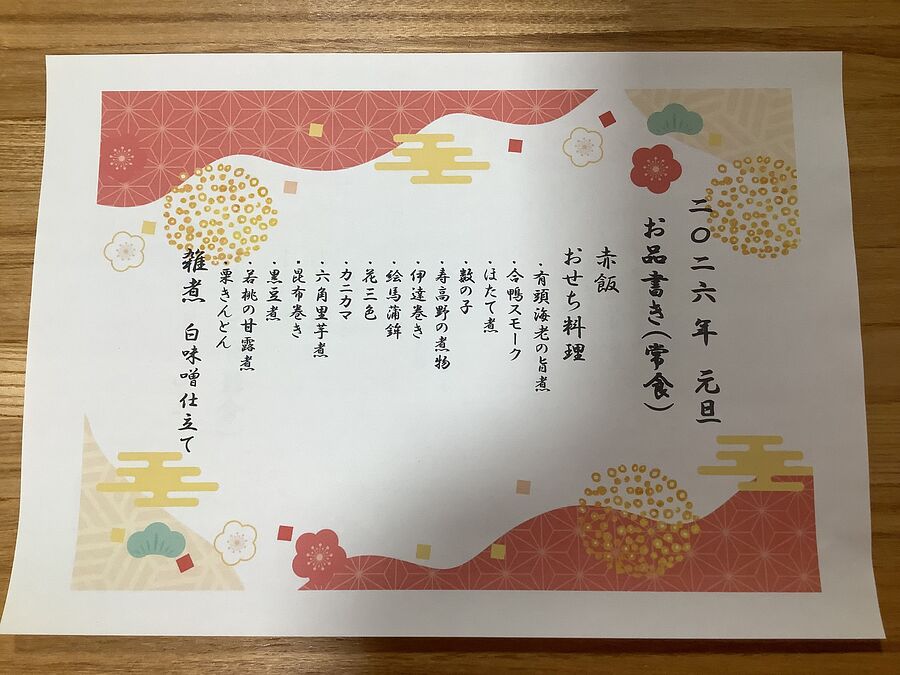 二〇二六年 元旦
お品書き(常食)
赤飯
おせち料理
・有頭海老の旨煮
・合鴨スモーク
・ほたて煮
・数の子
・寿高野の煮物
・伊達巻き
・絵馬蒲鉾
・花三色
・カニカマ
・六角里芋煮
・昆布巻き
・黒豆煮
・若桃の甘露煮
・栗きんとん
雑煮 白味噌仕立て